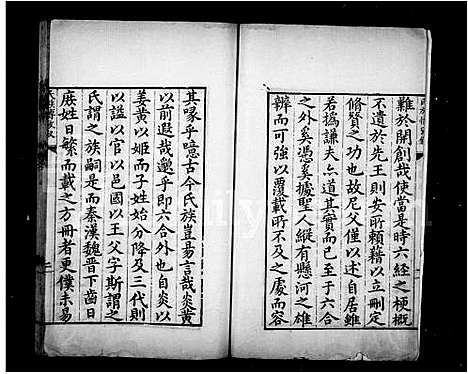 難於開創哉使當是時六經之梗概
不遺於先王則安所賴藉以立刪定
脩贊之功也故尼父僅以述自居雖
若撝謙夫亦道其實而已至于六合
之外奚憑奚據聖人縱有懸河之雄
辯而可強以覆載所不及之處而容
其喙乎噫古今氏族豈易言哉炎黃
以前遐哉邈乎即六合外也自炎以
姜黃以姬而子姓始分降及三代則
以謚以官以邑國以王父字斯謂之
氏謂之族嗣是而秦漢魏晉下齒日
庶姓日繁而載之方冊者更僕未易